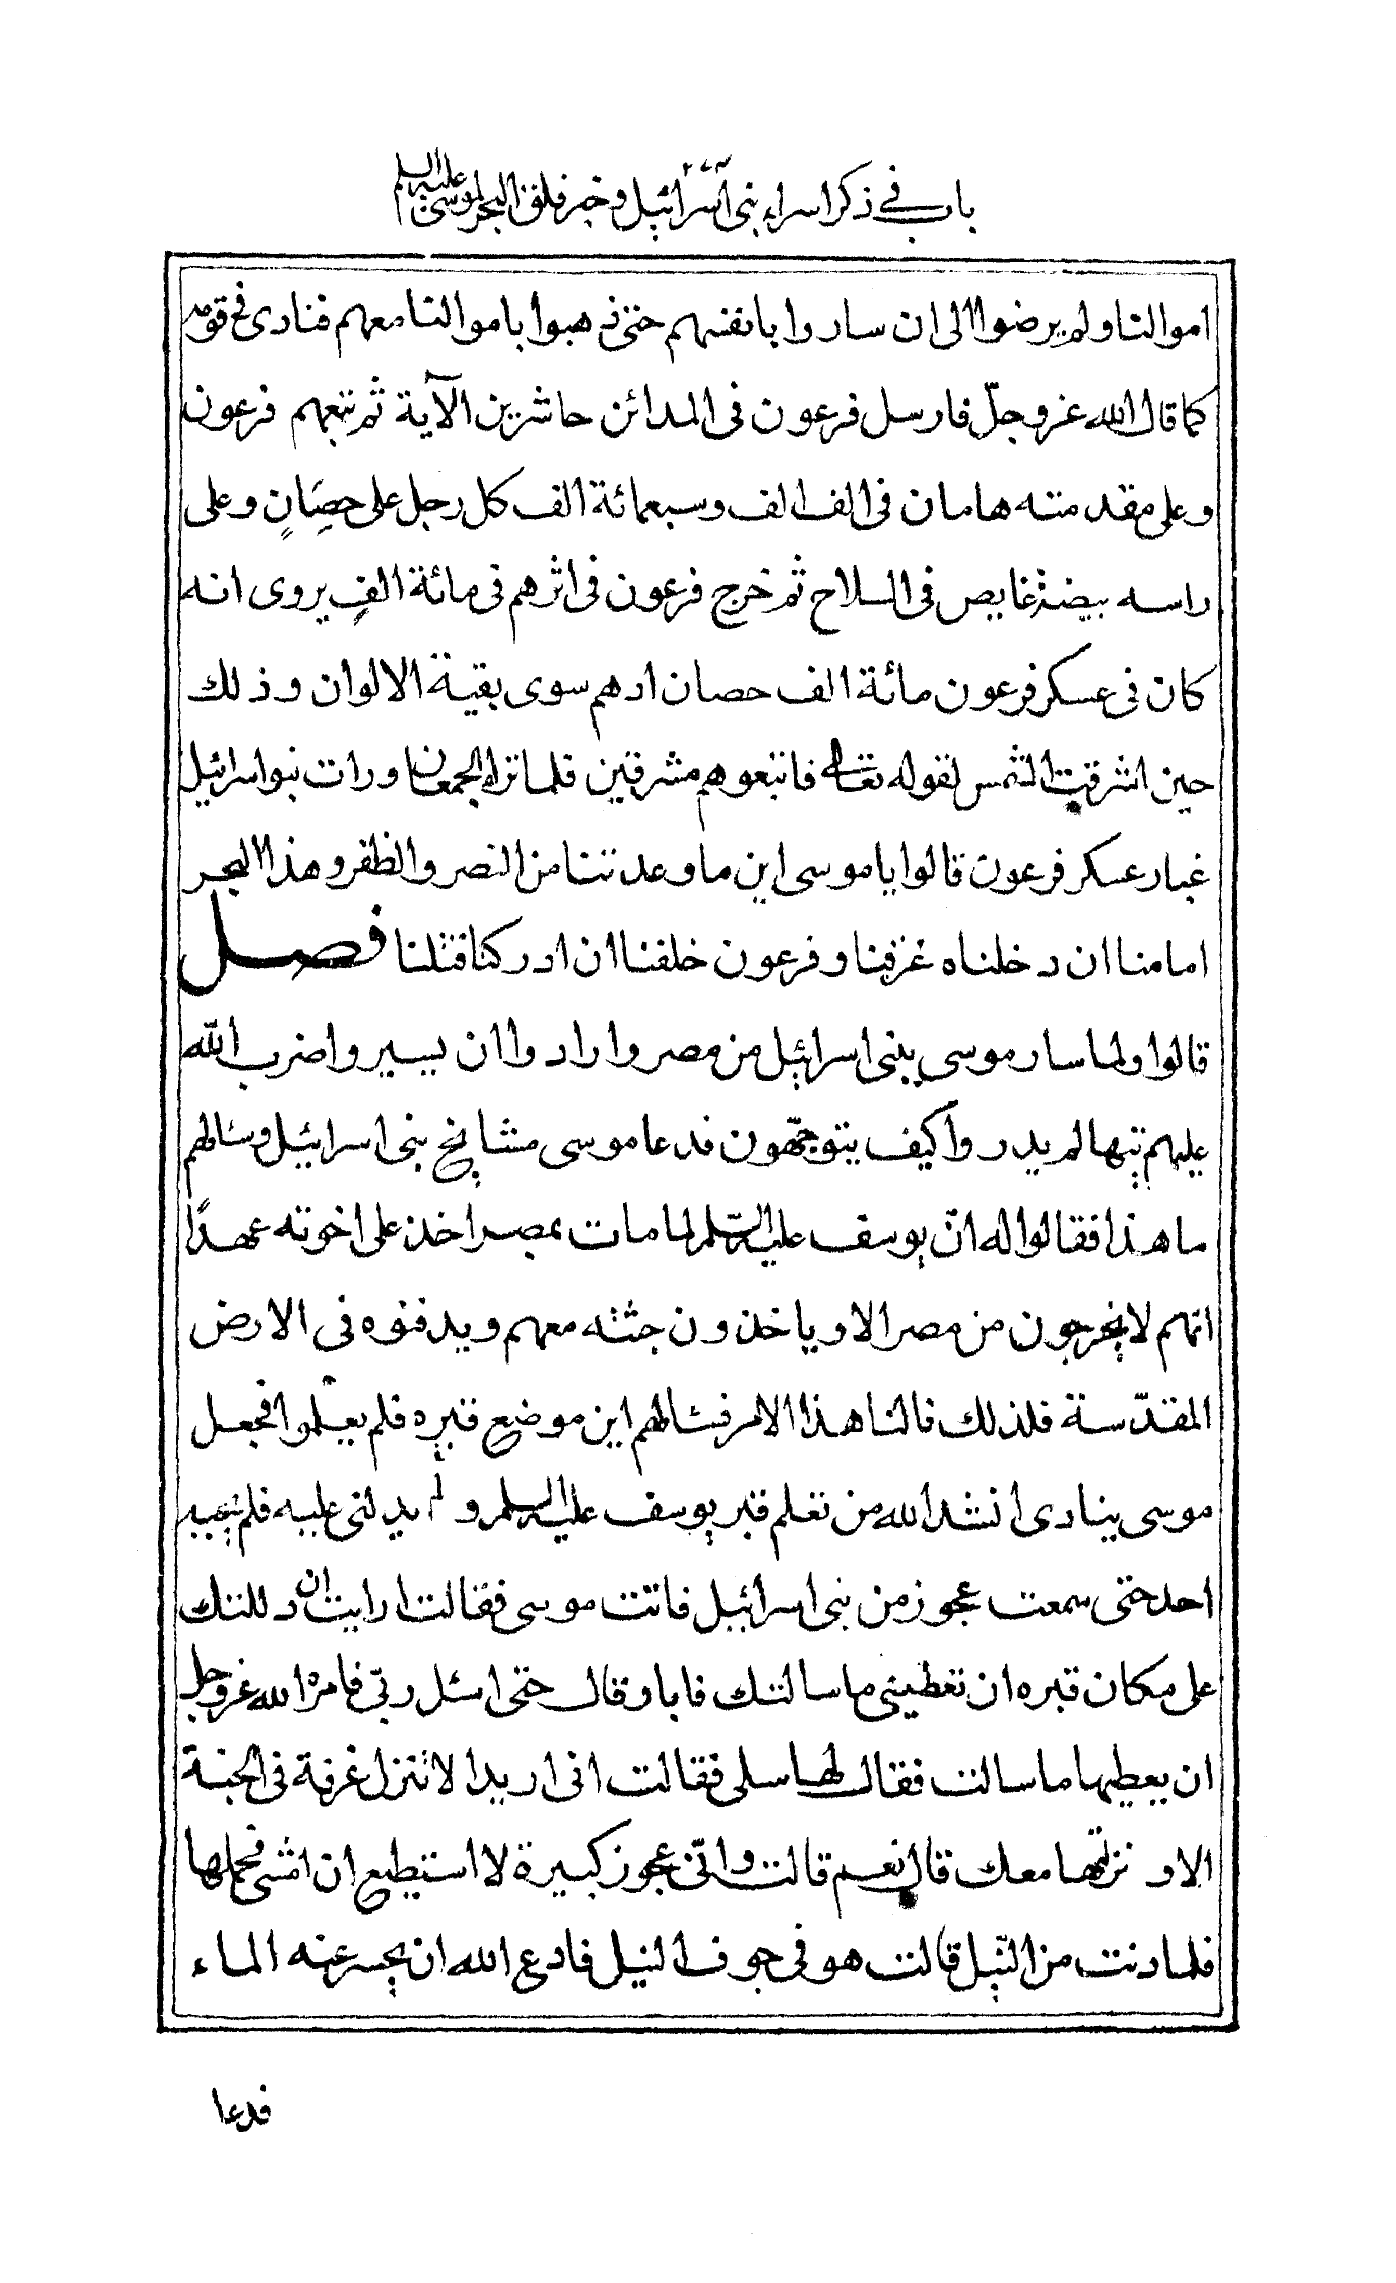 باب في ذكر اسراء بنى اسرائيل وخبر فلق البحر لموسى عليه السلم
اموالنا ولم يرضوا الى ان ساروا بانفسهم حتى ذهبوا باموالنا معهم فنادى فى قومه
كما قال الله عز وجلّ فارسل فرعون فى المدائن حاشرين الآية ثم تبعهم فرعون
وعلى مقدمته هامان فى الف الف وسبعمائة الف كل رجل على حصانٍ وعلى
راسه بيضة غايص فى السلاح ثم خرج فرعون فى اثرهم فى مائة الفٍ يروى انه
كان فى عسكر فرعون مائة الف حصان ادهم سوى بقية الالوان وذلك
حين اشرقت الشمس لقوله تعالى فاتبعوهم مشرقين فلما تراء الجمعان ورات بنوا اسرائيل
غبار عسكر فرعون قالوا يا موسى اين ما وعدتنا من النصر والظفر وهذا البحر
امامنا ان دخلناه غرقنا وفرعون خلفنا ان ادركنا قتلنا فصل
قالوا ولما سار موسى ببنى اسرائيل من مصر وارادوا ان يسيروا ضرب الله
عليهم تيها لم يدروا كيف يتوجّهون فدعا موسى مشايخ بنى اسرائيل وسالهم
ما هذا فقالوا له انّ يوسف عليه السّلم لما مات بمصر اخذ على اخوته عهدًا
انهم لا يخرجون من مصر الا وياخذون جثته معهم ويدفنوه فى الارض
المقدّسة فلذلك نالنا هذا الامر فسالهم اين موضع قبره فلم يعلموا فجعل
موسى ينادى انشد الله من تعلم قبر يوسف عليه السلم ولم يدلنى عليه فلم يجبه
احد حتى سمعت عجوز من بنى اسرائيل فاتت موسى فقالت ارايت ان دللتك
على مكان قبره ان تعطينى ما سالتك فابا وقال حتى اسئل ربّى فامره الله عز وجل
ان يعطيها ما سالت فقال لها سلى فقالت انى اريد الا تنزل غرفة فى الجنة
الا و نزلتها معك قال نعم قالت وانّى عجوز كبيرة لا استطيع ان امشى فحملها
فلما دنت من النّيل قالت هو فى جوف النيل فادع الله ان يحسر عنه الماء
فدعا